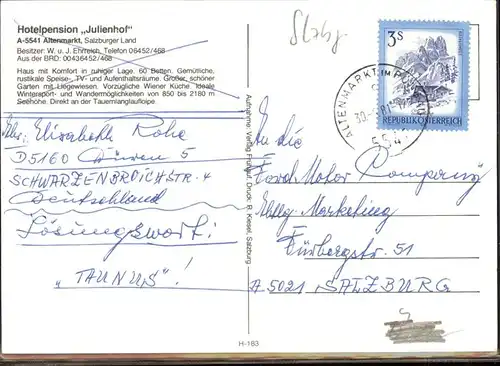 Hotelpension „Julienhof“
A-5541 Altenmarkt, Salzburger Land
Besitzer: W. u. J. Ehrreich, Telefon 06452/468
Aus der BRD: 00436452/468
Haus mit Komfort in ruhiger Lage. 60 Betten. Gemütliche,
rustikale Speise-, TV- und Aufenthaltsräume. Großer, schöner
Garten mit Liegewiesen. Vorzügliche Wiener Küche. Ideale
Wintersport- und Wandermöglichkeiten von 850 bis 2180 m
Seehöhe. Direkt an der Tauernlanglaufloipe
Elisabeth Rohe
D 5160 Düren 5
SCHWARZENBROICHSTR. 4
Deutschland
Lösungswort:
„TAUNUS"!
Aufnahme: Verlag Druck: R. Kiesel, Salzburg
H-183
Slzbg
3 S
REPUBLIK ÖSTERREICH
ALTENMARKT IM
5541
An die
Ford Motor Company
Marketing
Fürbergstr. 51
A 5021 SALZBURG